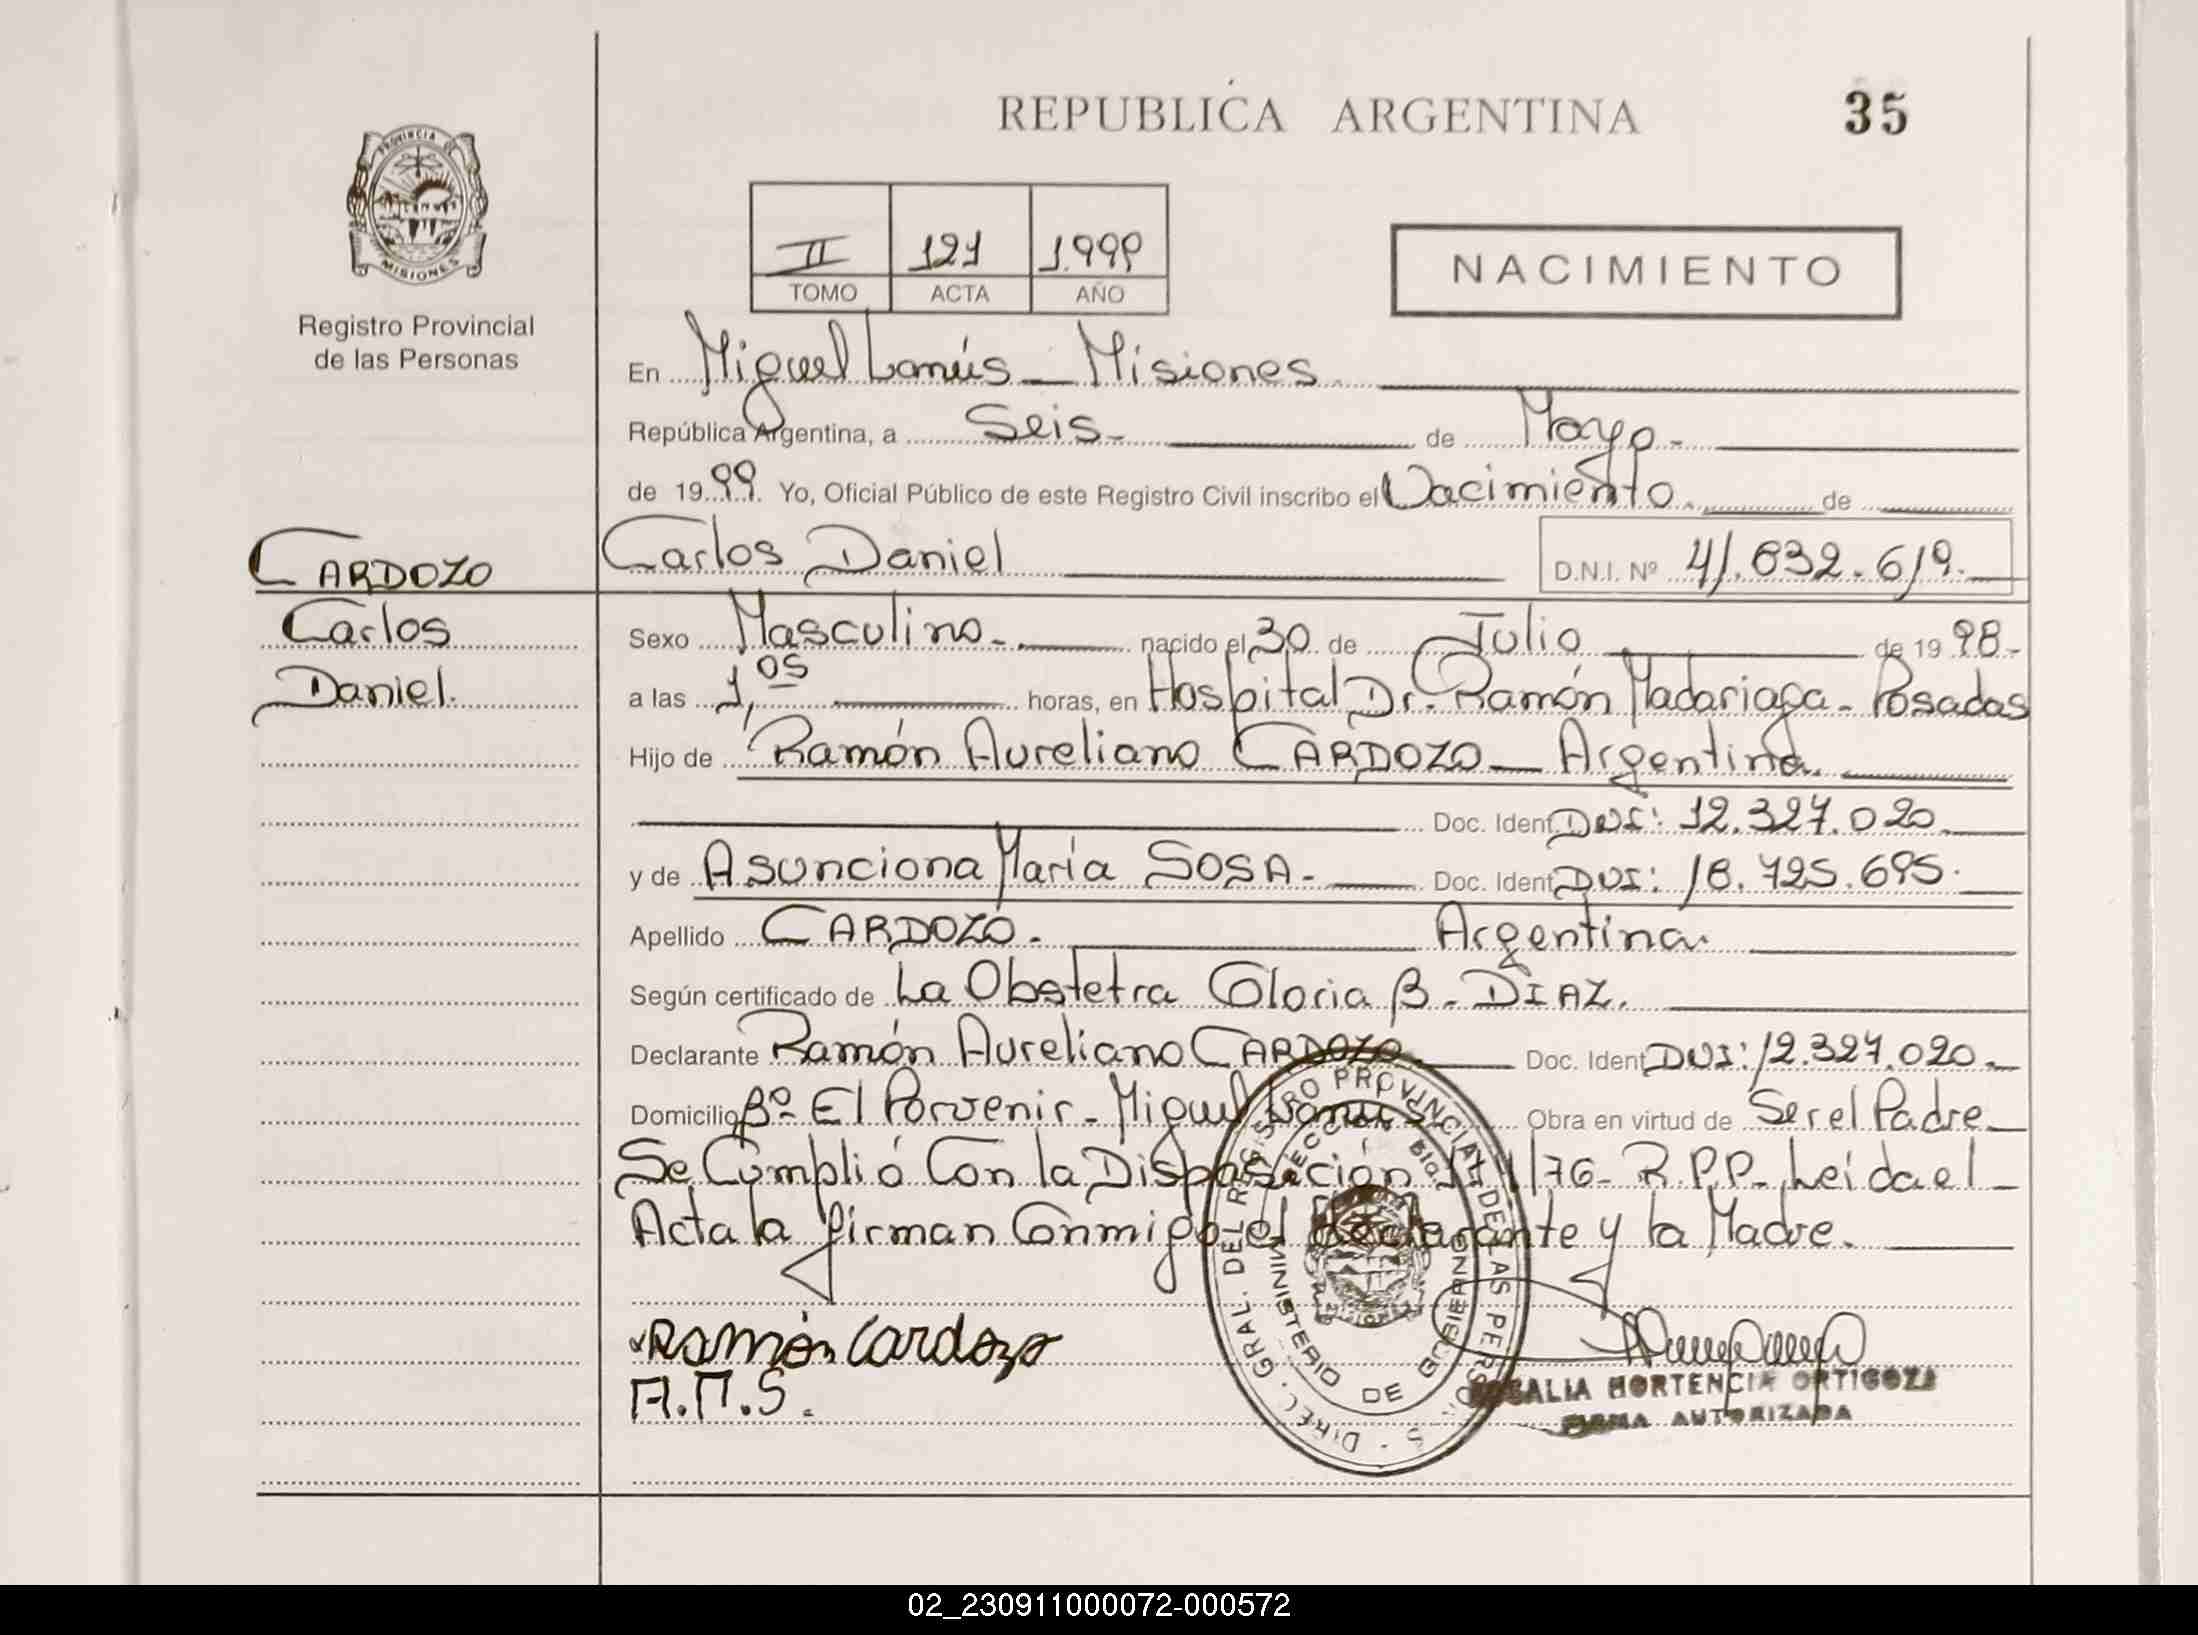 REPUBLICA ARGENTINA
35
PROVINCIA DE
MISIONES
Registro Provincial
de las Personas
II 121 1.999
TOMO ACTA AÑO
NACIMIENTO
En Miguel Lanús - Misiones
República Argentina, a Seis - de Mayo -
de 1999. Yo, Oficial Público de este Registro Civil inscribo el Nacimiento. de
CARDOZO
Carlos
Daniel.
Carlos Daniel D.N.I. Nº 41.632.619.
Sexo Masculino - nacido el 30 de Julio de 1998.-
a las 1,05 horas, en Hospital Dr. Ramón Madariaga - Posadas
Hijo de Ramón Aureliano CARDOZO - Argentina.
Doc. Ident. DNI: 12.327.020.
y de Asunciona María SOSA. - Doc. Ident. DNI: 18.725.695.
Apellido CARDOZO. Argentina.
Según certificado de La Obstetra Gloria B. DIAZ.
Declarante Ramón Aureliano CARDOZO. Doc. Ident. DNI: 12.327.020.
Domicilio Bº El Porvenir - Miguel Lanus Obra en virtud de Ser el Padre
Se Cumplió Con la Disposición Nº 1/76 - R.P.P. Leída el
Acta la firman Conmigo el declarante y la Madre.
Ramón Cardozo
A.M.S.
DIREC. GRAL. DEL REGISTRO PROVINCIAL DE LAS PERSONAS
MINISTERIO DE GOBIERNO
ROSALIA HORTENCIA ORTIGOZA
FIRMA AUTORIZADA
02_230911000072-000572